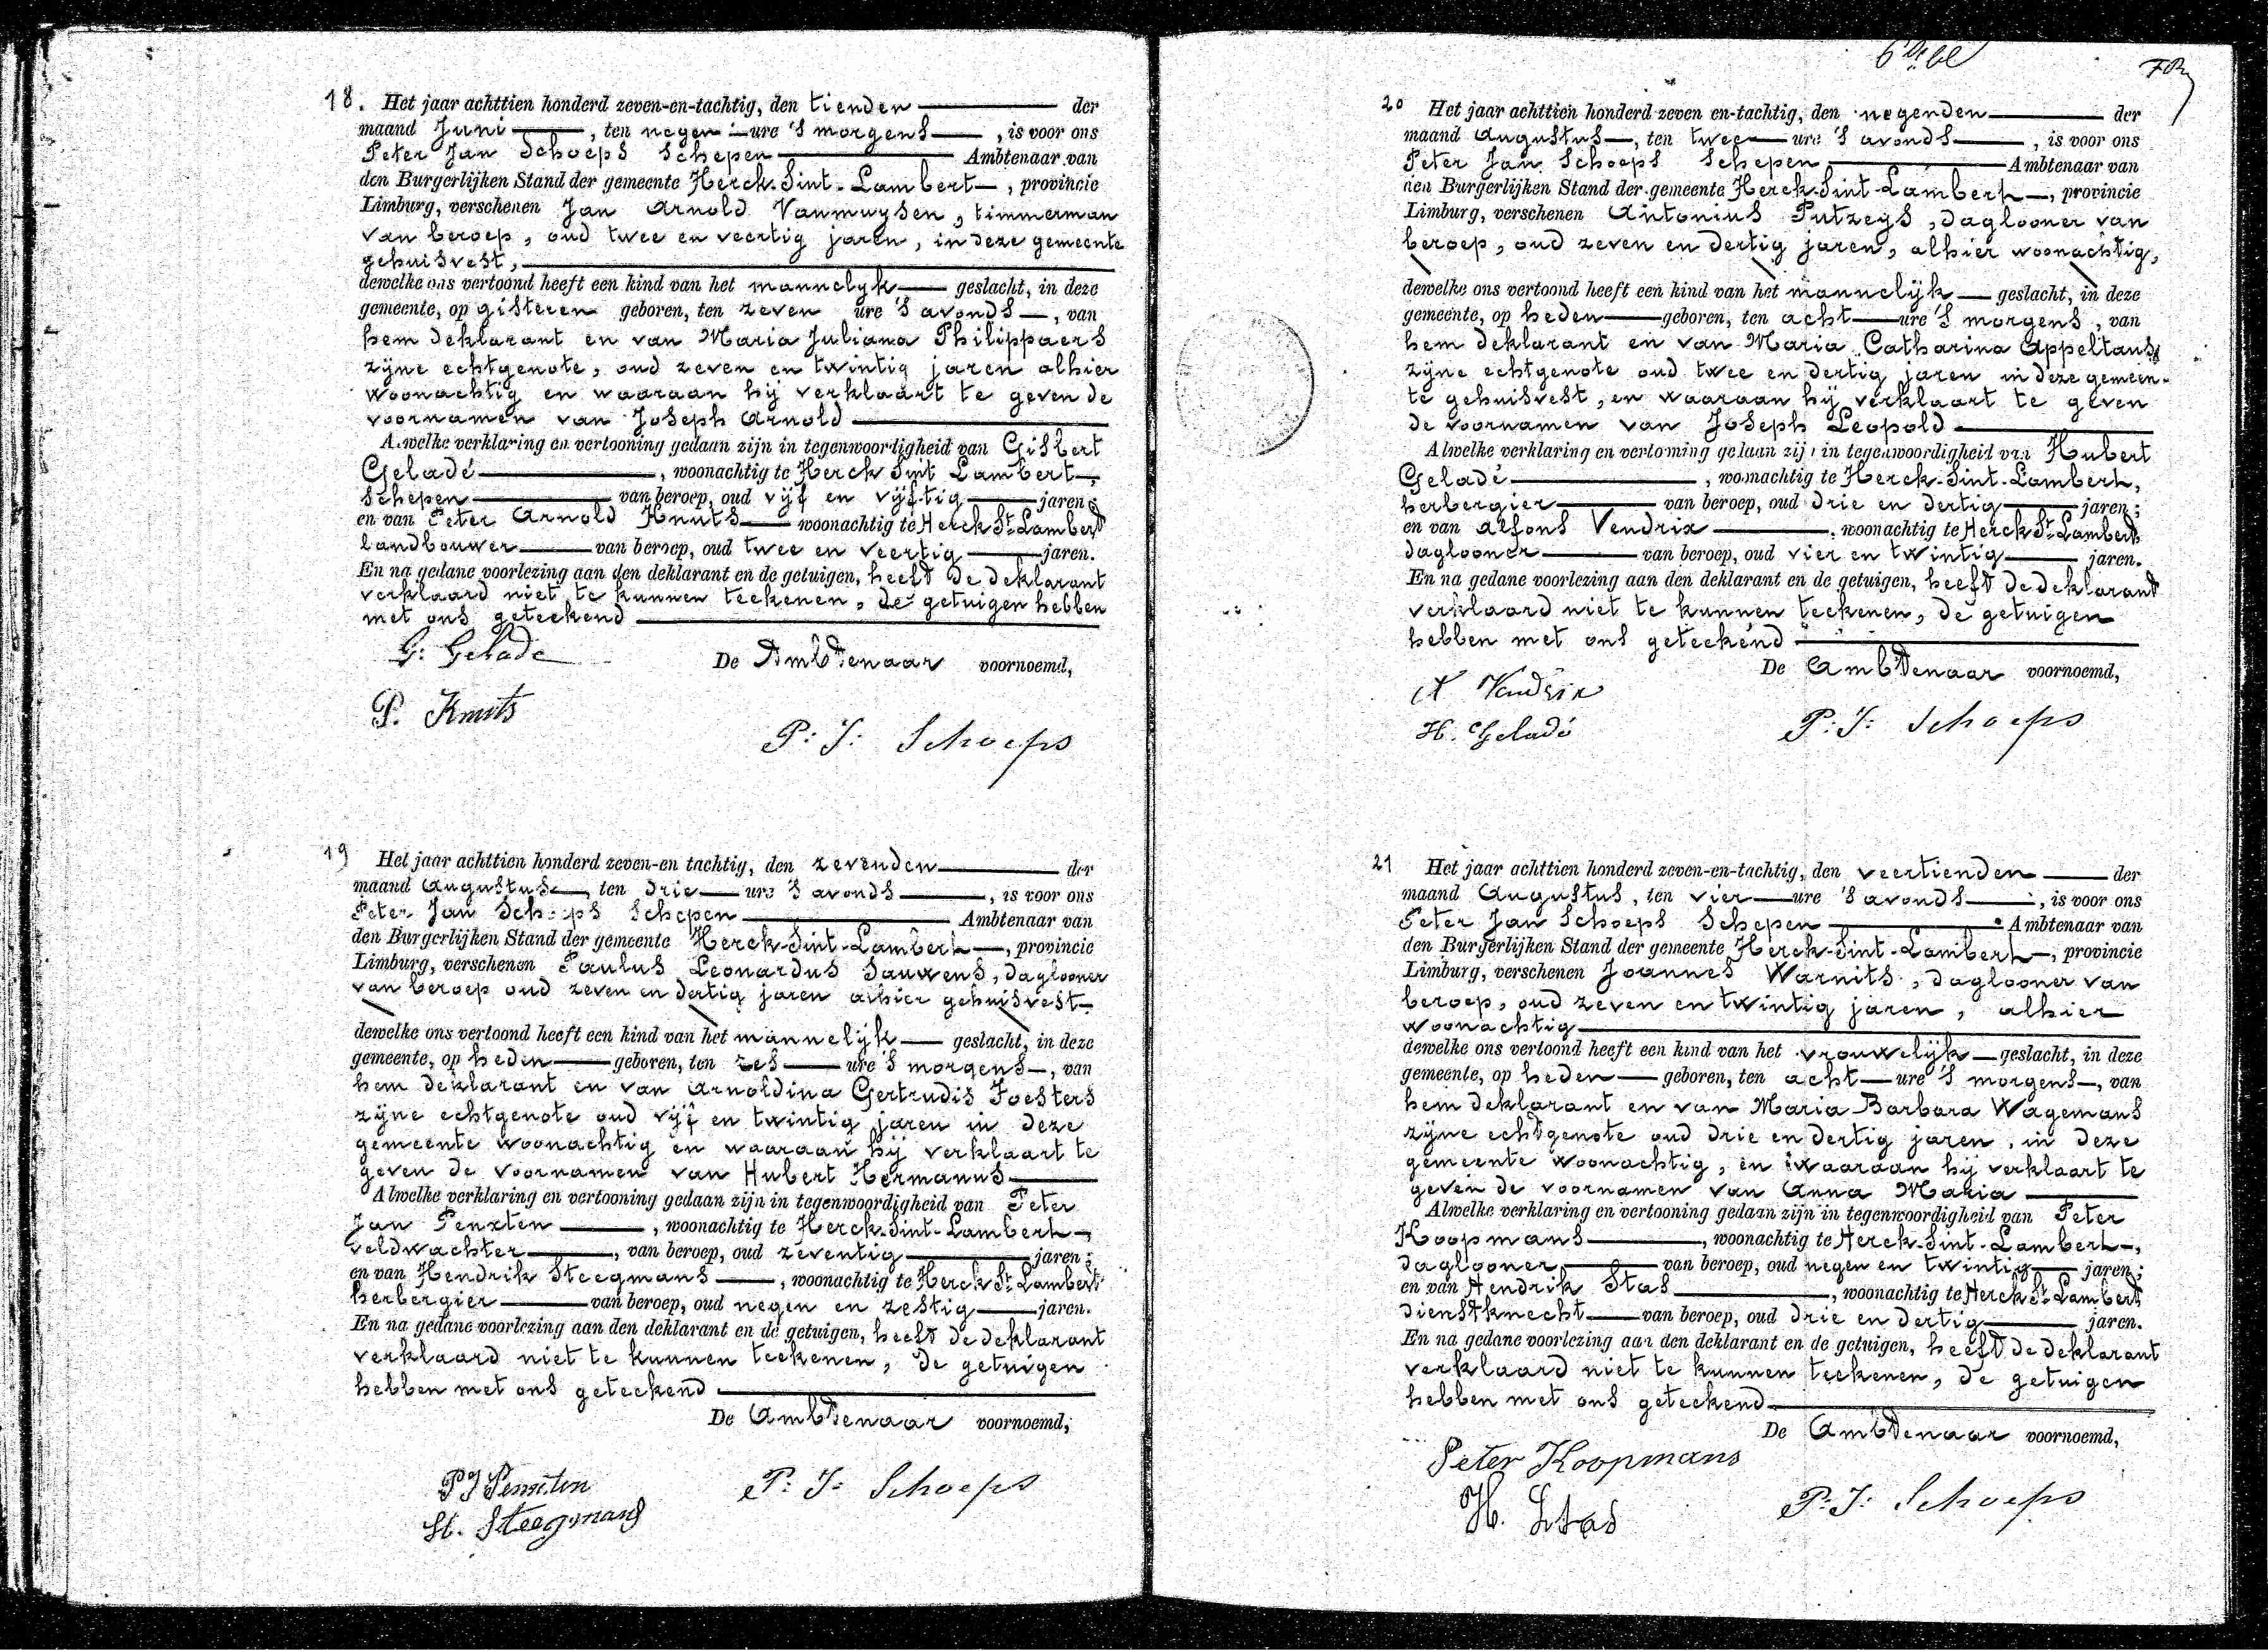 18. Het jaar achttien honderd zeven-en-tachtig, den tienden der
maand Juni, ten negen ure 's morgens, is voor ons
Peter Jan Schoeps Schepen Ambtenaar van
den Burgerlijken Stand der gemeente Herck-Sint-Lambert, provincie
Limburg, verschenen Jan Arnold Vanmuysen, timmerman
van beroep, oud twee en veertig jaren, in deze gemeente
gehuisvest,
dewelke ons vertoond heeft een kind van het mannelyk geslacht, in deze
gemeente, op gisteren geboren, ten zeven ure 's avonds, van
hem deklarant en van Maria Juliana Philippaers
zijne echtgenote, oud zeven en twintig jaren alhier
woonachtig en waaraan hij verklaart te geven de
voornamen van Joseph Arnold
Alwelke verklaring en vertooning gedaan zijn in tegenwoordigheid van Gisbert
Geladé, woonachtig te Herck Sint Lambert,
Schepen van beroep, oud vijf en vijftig jaren;
en van Peter Arnold Knuts woonachtig te Herck St. Lambert
landbouwer van beroep, oud twee en veertig jaren.
En na gedane voorlezing aan den deklarant en de getuigen, heeft de deklarant
verklaard niet te kunnen teekenen, de getuigen hebben
met ons geteekend
G: Gelade
De Ambtenaar voornoemd,
P. Knuts
P: J: Schoeps
19 Het jaar achttien honderd zeven-en tachtig, den zevenden der
maand Augustus, ten drie ure 's avonds, is voor ons
Peter Jan Schoeps Schepen Ambtenaar van
den Burgerlijken Stand der gemeente Herck-Sint-Lambert, provincie
Limburg, verschenen Paulus Leonardus Sauwens, daglooner
van beroep oud zeven en dertig jaren alhier gehuisvest
dewelke ons vertoond heeft een kind van het mannelijk geslacht, in deze
gemeente, op heden geboren, ten zes ure 's morgens, van
hem deklarant en van Arnoldina Gertrudis Joesters
zijne echtgenote oud vijf en twintig jaren in deze
gemeente woonachtig en waaraan hij verklaart te
geven de voornamen van Hubert Hermanus
Alwelke verklaring en vertooning gedaan zijn in tegenwoordigheid van Peter
Jan Penxten, woonachtig te Herck-Sint-Lambert,
veldwachter, van beroep, oud zeventig jaren;
en van Hendrik Steegmans, woonachtig te Herck St. Lambert
herbergier van beroep, oud negen en zestig jaren.
En na gedane voorlezing aan den deklarant en de getuigen, heeft de deklarant
verklaard niet te kunnen teekenen, de getuigen
hebben met ons geteekend
De Ambtenaar voornoemd,
PJ Penxten
P: J: Schoeps
H. Steegmans
20 Het jaar achttien honderd zeven en-tachtig, den negenden der
maand Augustus, ten twee ure 's avonds, is voor ons
Peter Jan Schoeps Schepen Ambtenaar van
den Burgerlijken Stand der gemeente Herck-Sint-Lambert, provincie
Limburg, verschenen Antonius Putzeys, daglooner van
beroep, oud zeven en dertig jaren, alhier woonachtig,
dewelke ons vertoond heeft een kind van het mannelijk geslacht, in deze
gemeente, op heden geboren, ten acht ure 's morgens, van
hem deklarant en van Maria Catharina Appeltans
zijne echtgenote oud twee en dertig jaren in deze gemeen-
te gehuisvest, en waaraan hij verklaart te geven
de voornamen van Joseph Leopold
Alwelke verklaring en vertooning gedaan zijn in tegenwoordigheid van Hubert
Geladé, woonachtig te Herck-Sint-Lambert,
herbergier van beroep, oud drie en dertig jaren;
en van Alfons Vendrix, woonachtig te Herck St. Lambert
daglooner van beroep, oud vier en twintig jaren.
En na gedane voorlezing aan den deklarant en de getuigen, heeft de deklarant
verklaard niet te kunnen teekenen, de getuigen
hebben met ons geteekend
De Ambtenaar voornoemd,
A Vendrix
H. Geladé
P: J: Schoeps
21 Het jaar achttien honderd zeven-en-tachtig, den veertienden der
maand Augustus, ten vier ure 's avonds, is voor ons
Peter Jan Schoeps Schepen Ambtenaar van
den Burgerlijken Stand der gemeente Herck-Sint-Lambert, provincie
Limburg, verschenen Joannes Warnits, daglooner van
beroep, oud zeven en twintig jaren, alhier
woonachtig
dewelke ons vertoond heeft een kind van het vrouwelijk geslacht, in deze
gemeente, op heden geboren, ten acht ure 's morgens, van
hem deklarant en van Maria Barbara Wagemans
zijne echtgenote oud drie en dertig jaren, in deze
gemeente woonachtig, en waaraan hij verklaart te
geven de voornamen van Anna Maria
Alwelke verklaring en vertooning gedaan zijn in tegenwoordigheid van Peter
Koopmans, woonachtig te Herck-Sint-Lambert,
daglooner van beroep, oud negen en twintig jaren;
en van Hendrik Stas, woonachtig te Herck St. Lambert
dienstknecht van beroep, oud drie en dertig jaren.
En na gedane voorlezing aan den deklarant en de getuigen, heeft de deklarant
verklaard niet te kunnen teekenen, de getuigen
hebben met ons geteekend
De Ambtenaar voornoemd,
Peter Koopmans
H. Stas
P: J: Schoeps